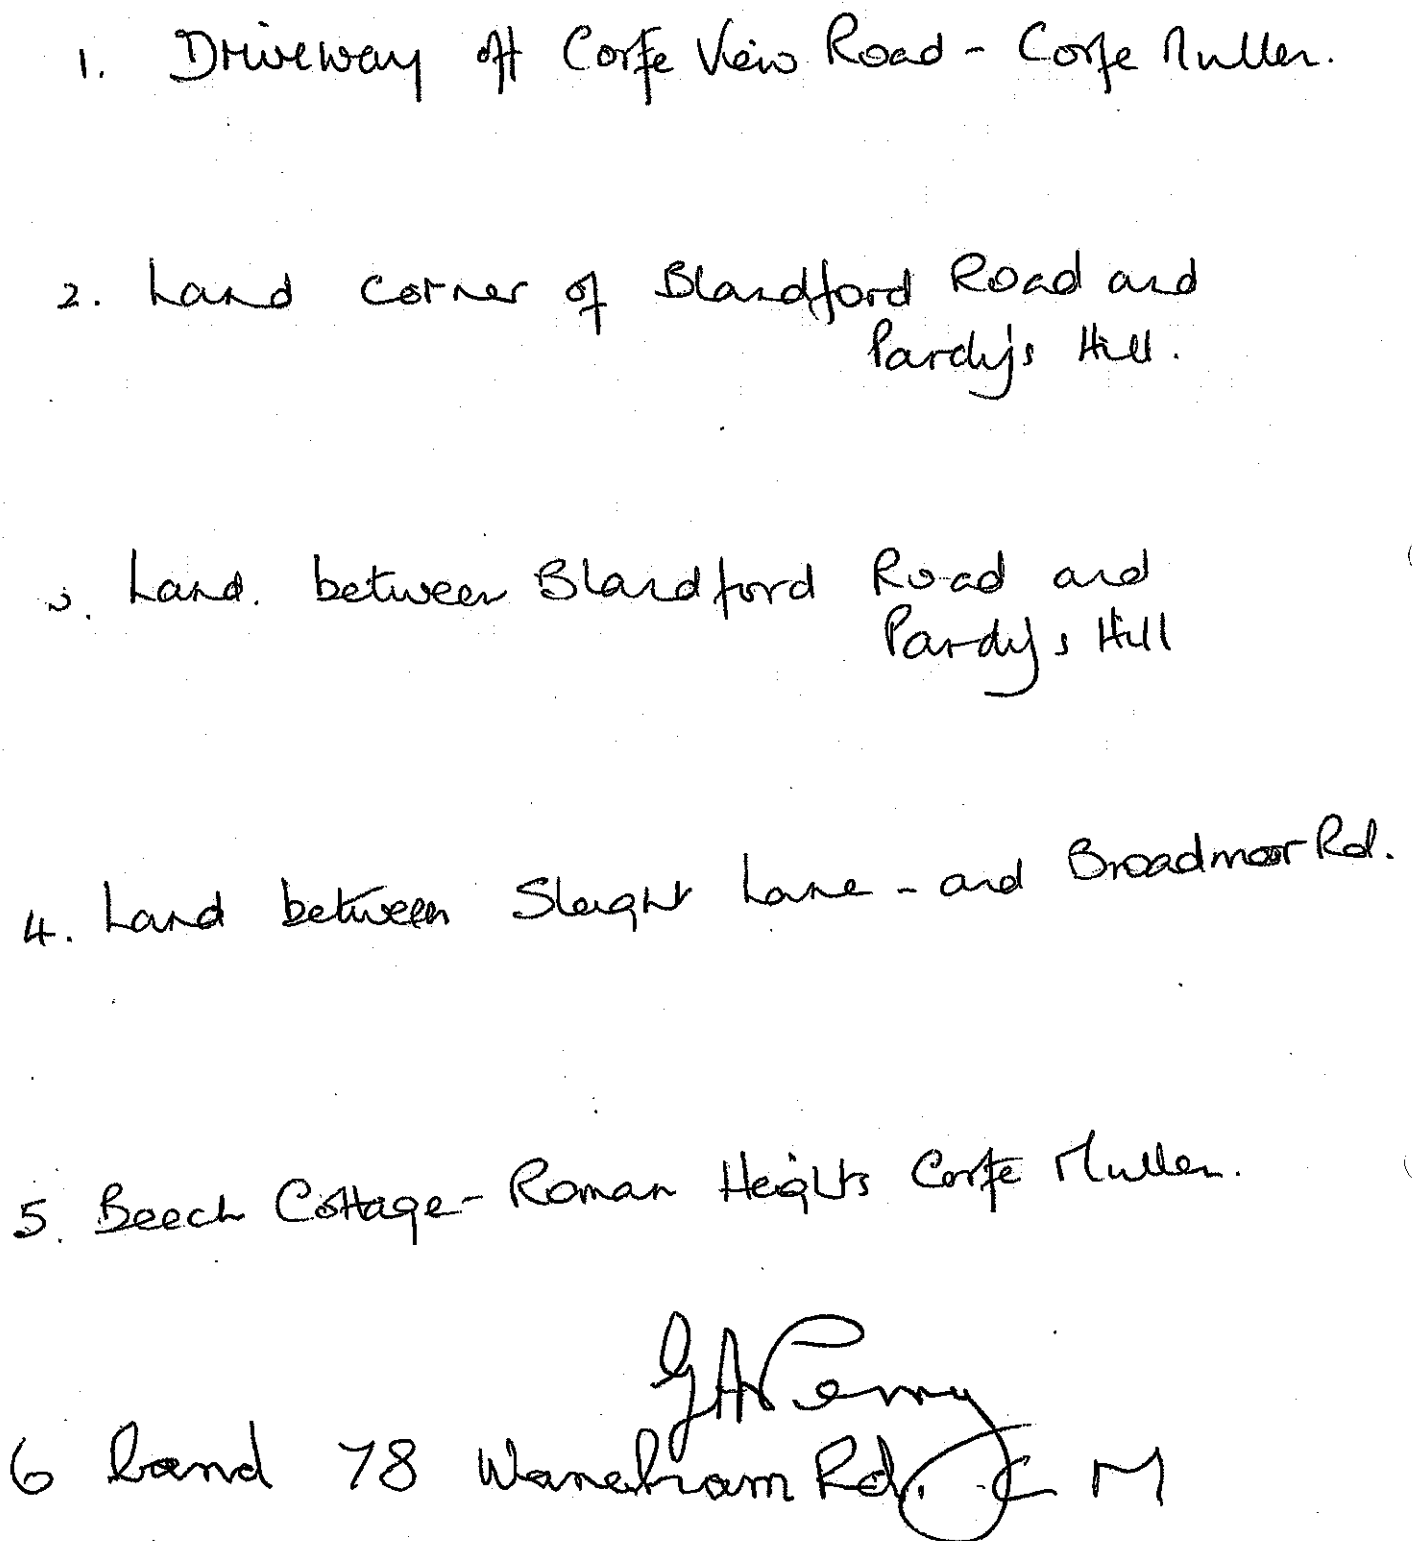 1. Driveway off Corfe View Road - Corfe Mullen.
2. Land corner of Blandford Road and
Pardy's Hill.
3. Land. between Blandford Road and
Pardy's Hill
4. Land between Sleight Lane - and Broadmoor Rd.
5. Beech Cottage - Roman Heights Corfe Mullen.
GA Perry
6 Land 78 Wareham Rd. C M